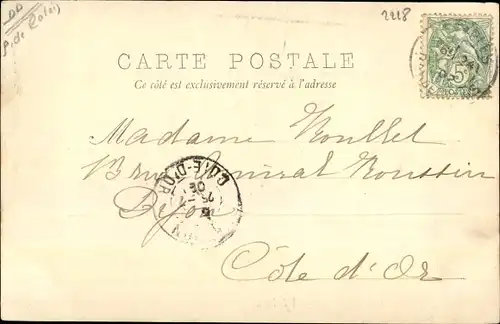 DD
P. de Calais
2218
CARTE POSTALE
Ce côté est exclusivement réservé à l'adresse
5
Madame Roullet
Amiral Roussin
Dijon
CÔTE-D'OR
Côte d'Or